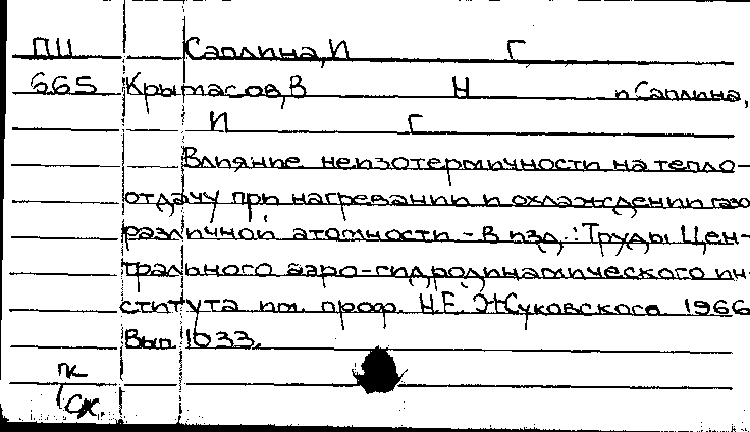 ПII Саплина, И Г
665 Крымасов, В Н и Саплина,
И Г
Влияние неизотермичности на тепло-
отдачу при нагревании и охлаждении газо
различной атомности - В изд.: Труды Цен-
трального аэро-гидродинамического ин-
ститута им. проф. Н.Е. Жуковского 1966
Вып 1033.
пк
ск.